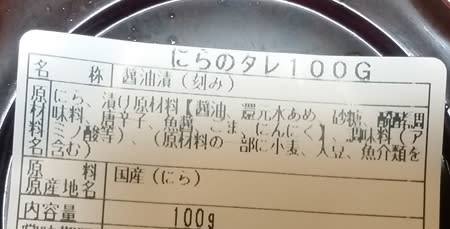 にらのタレ100G
名称 醤油漬(刻み)
原材料名 にら、漬け原材料【醤油、還元水あめ、砂糖、醗酵調
味料、唐辛子、魚醤、ごま、にんにく】、調味料(ア
ミノ酸等)、(原材料の一部に小麦、大豆、魚介類を
含む)
原料原産地名 国産(にら)
内容量 100g
賞味期限